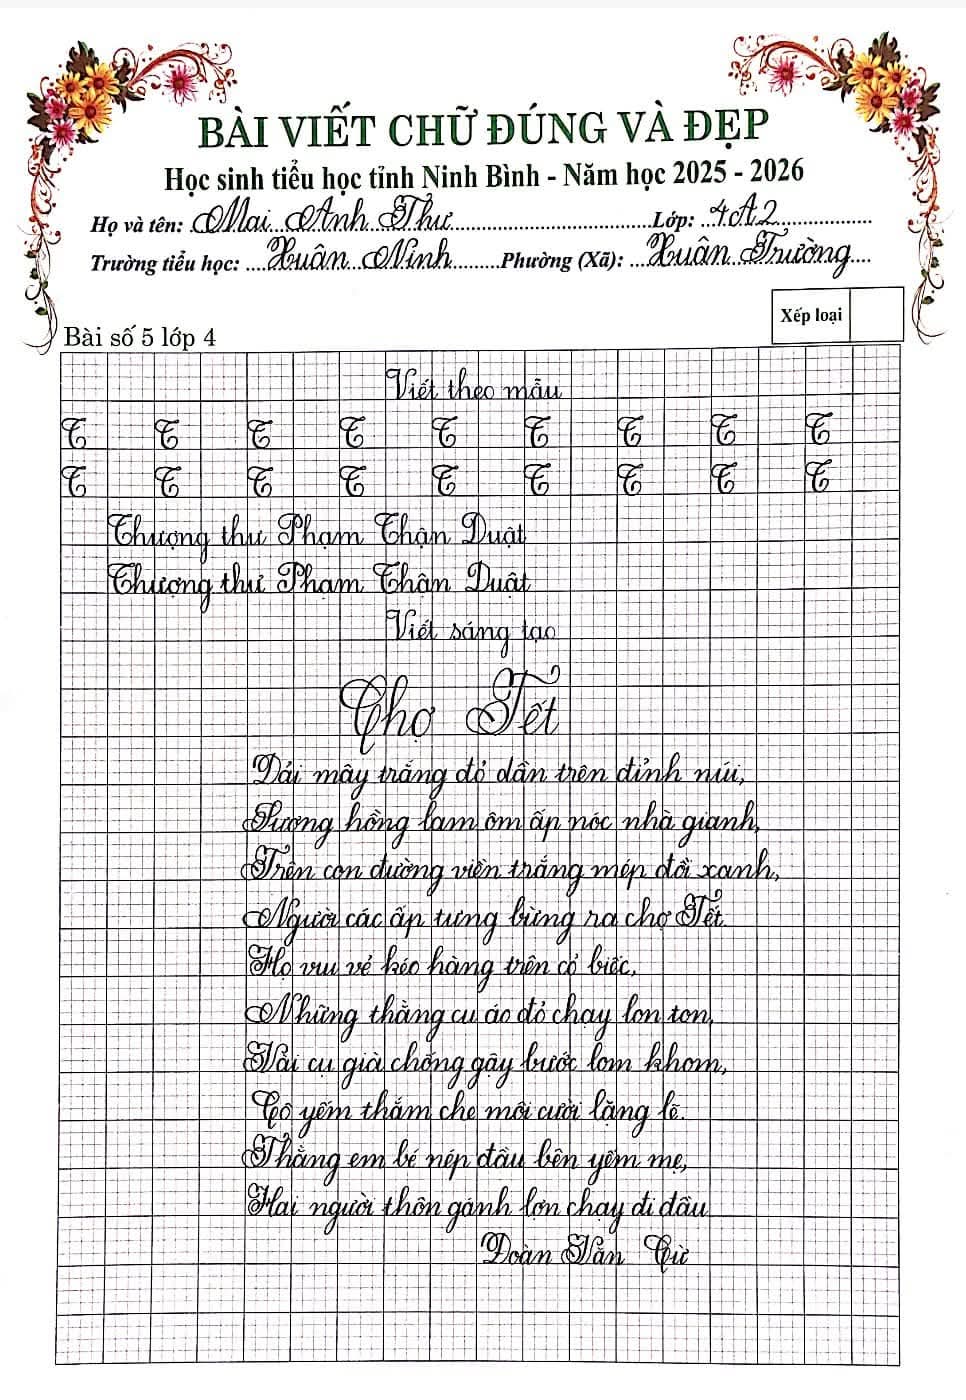 BÀI VIẾT CHỮ ĐÚNG VÀ ĐẸP
Học sinh tiểu học tỉnh Ninh Bình - Năm học 2025 - 2026
Họ và tên: Mai Anh Thư Lớp: 4A2
Trường tiểu học: Xuân Ninh Phường (Xã): Xuân Trường
Xếp loại
Bài số 5 lớp 4
Viết theo mẫu
T T T T T T T T T
T T T T T T T T T
Thượng thư Phạm Thận Duật
Thượng thư Phạm Thận Duật
Viết sáng tạo
Chợ Tết
Dải mây trắng đỏ dần trên đỉnh núi,
Sương hồng lam ôm ấp nóc nhà gianh,
Trên con đường viền trắng mép đồi xanh,
Người các ấp tưng bừng ra chợ Tết.
Họ vui vẻ kéo hàng trên cỏ biếc,
Những thằng cu áo đỏ chạy lon ton,
Vài cụ già chống gậy bước lom khom,
Cô yếm thắm che môi cười lặng lẽ.
Thằng em bé nép đầu bên yếm mẹ,
Hai người thôn gánh lợn chạy đi đầu
Đoàn Văn Cừ